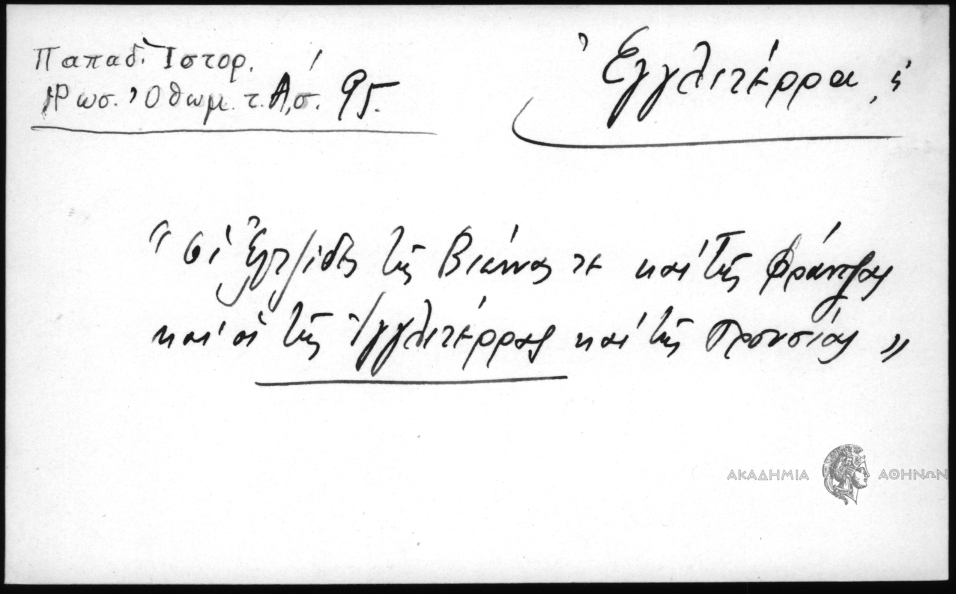 Παπαδ. Ἱστορ.
Ρωσ. Ὀθωμ. τ. Α, σ. 95.
Ἐγγλιτέρρα, ἡ
"οἱ Ἐλτζίδες τῆς Βιέννας τε καὶ τῆς Φράντζας
καὶ οἱ τῆς Ἰγγλιτέρρας καὶ τῆς Προυσίας"
ΑΚΑΔΗΜΙΑ ΑΘΗΝΩΝ